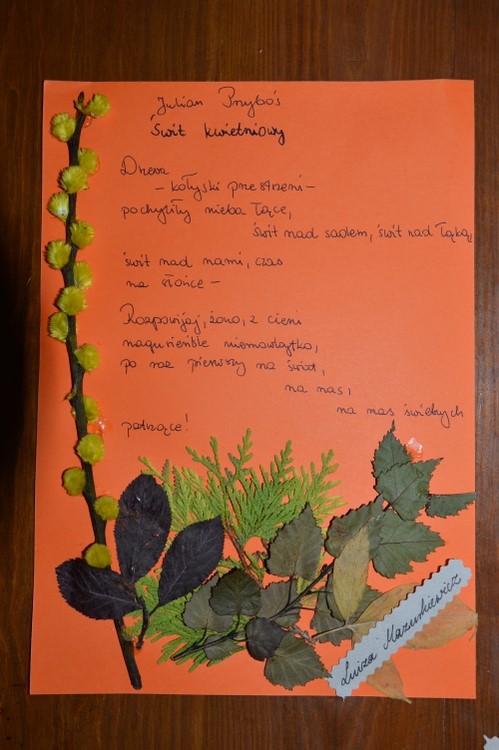 Julian Przyboś
Świt kwietniowy
Drzewa
– kołyski przestrzeni –
pochyliły nieba łące,
świt nad sadem, świt nad łąką,
świt nad nami, czas
na słońce –
Rozpowijaj, żono, z cieni
nagusieńkie niemowlątko,
po raz pierwszy na świat,
na nas,
na nas świetnych
patrzące!
Luiza Mazurkiewicz